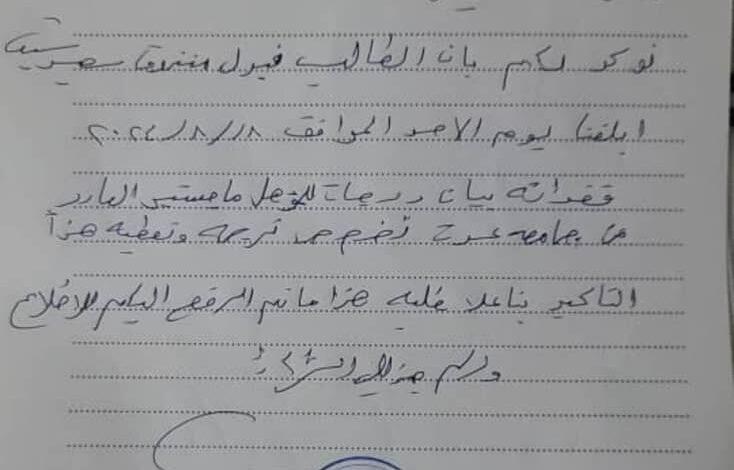 نؤكد لكم بان الطالب فيول
ابلغنا يوم الاحد الموافق ٢٠٢٤/٨/١٨
فقدانه بيان درجات للمؤهل ماجستير الصادر
من جامعه عدن تخصص تربيه وتعطيه هذا
التأكيد بناء علا طلبه هذا ماتم الرفع اليكم للاطلاع
ولكم جزيل الشكر